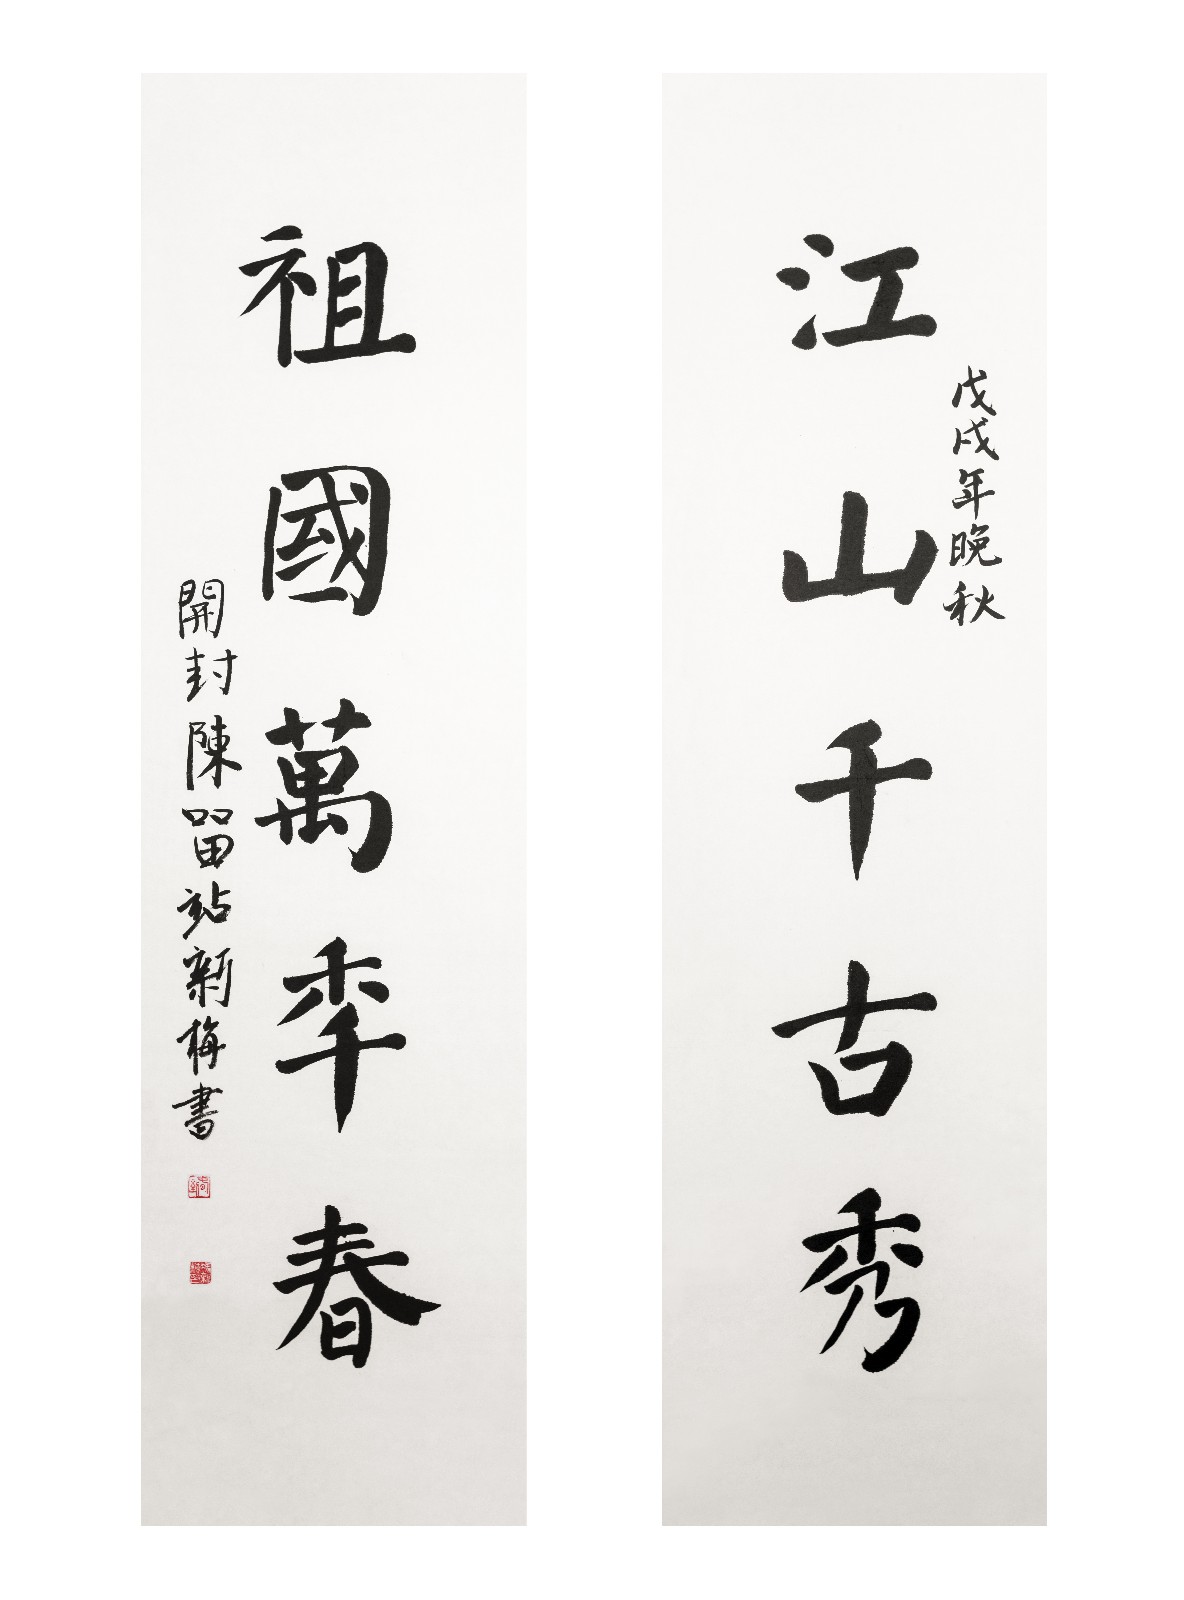 戊戌年晚秋
江山千古秀
祖國萬秊春
開封陳留站新梅書